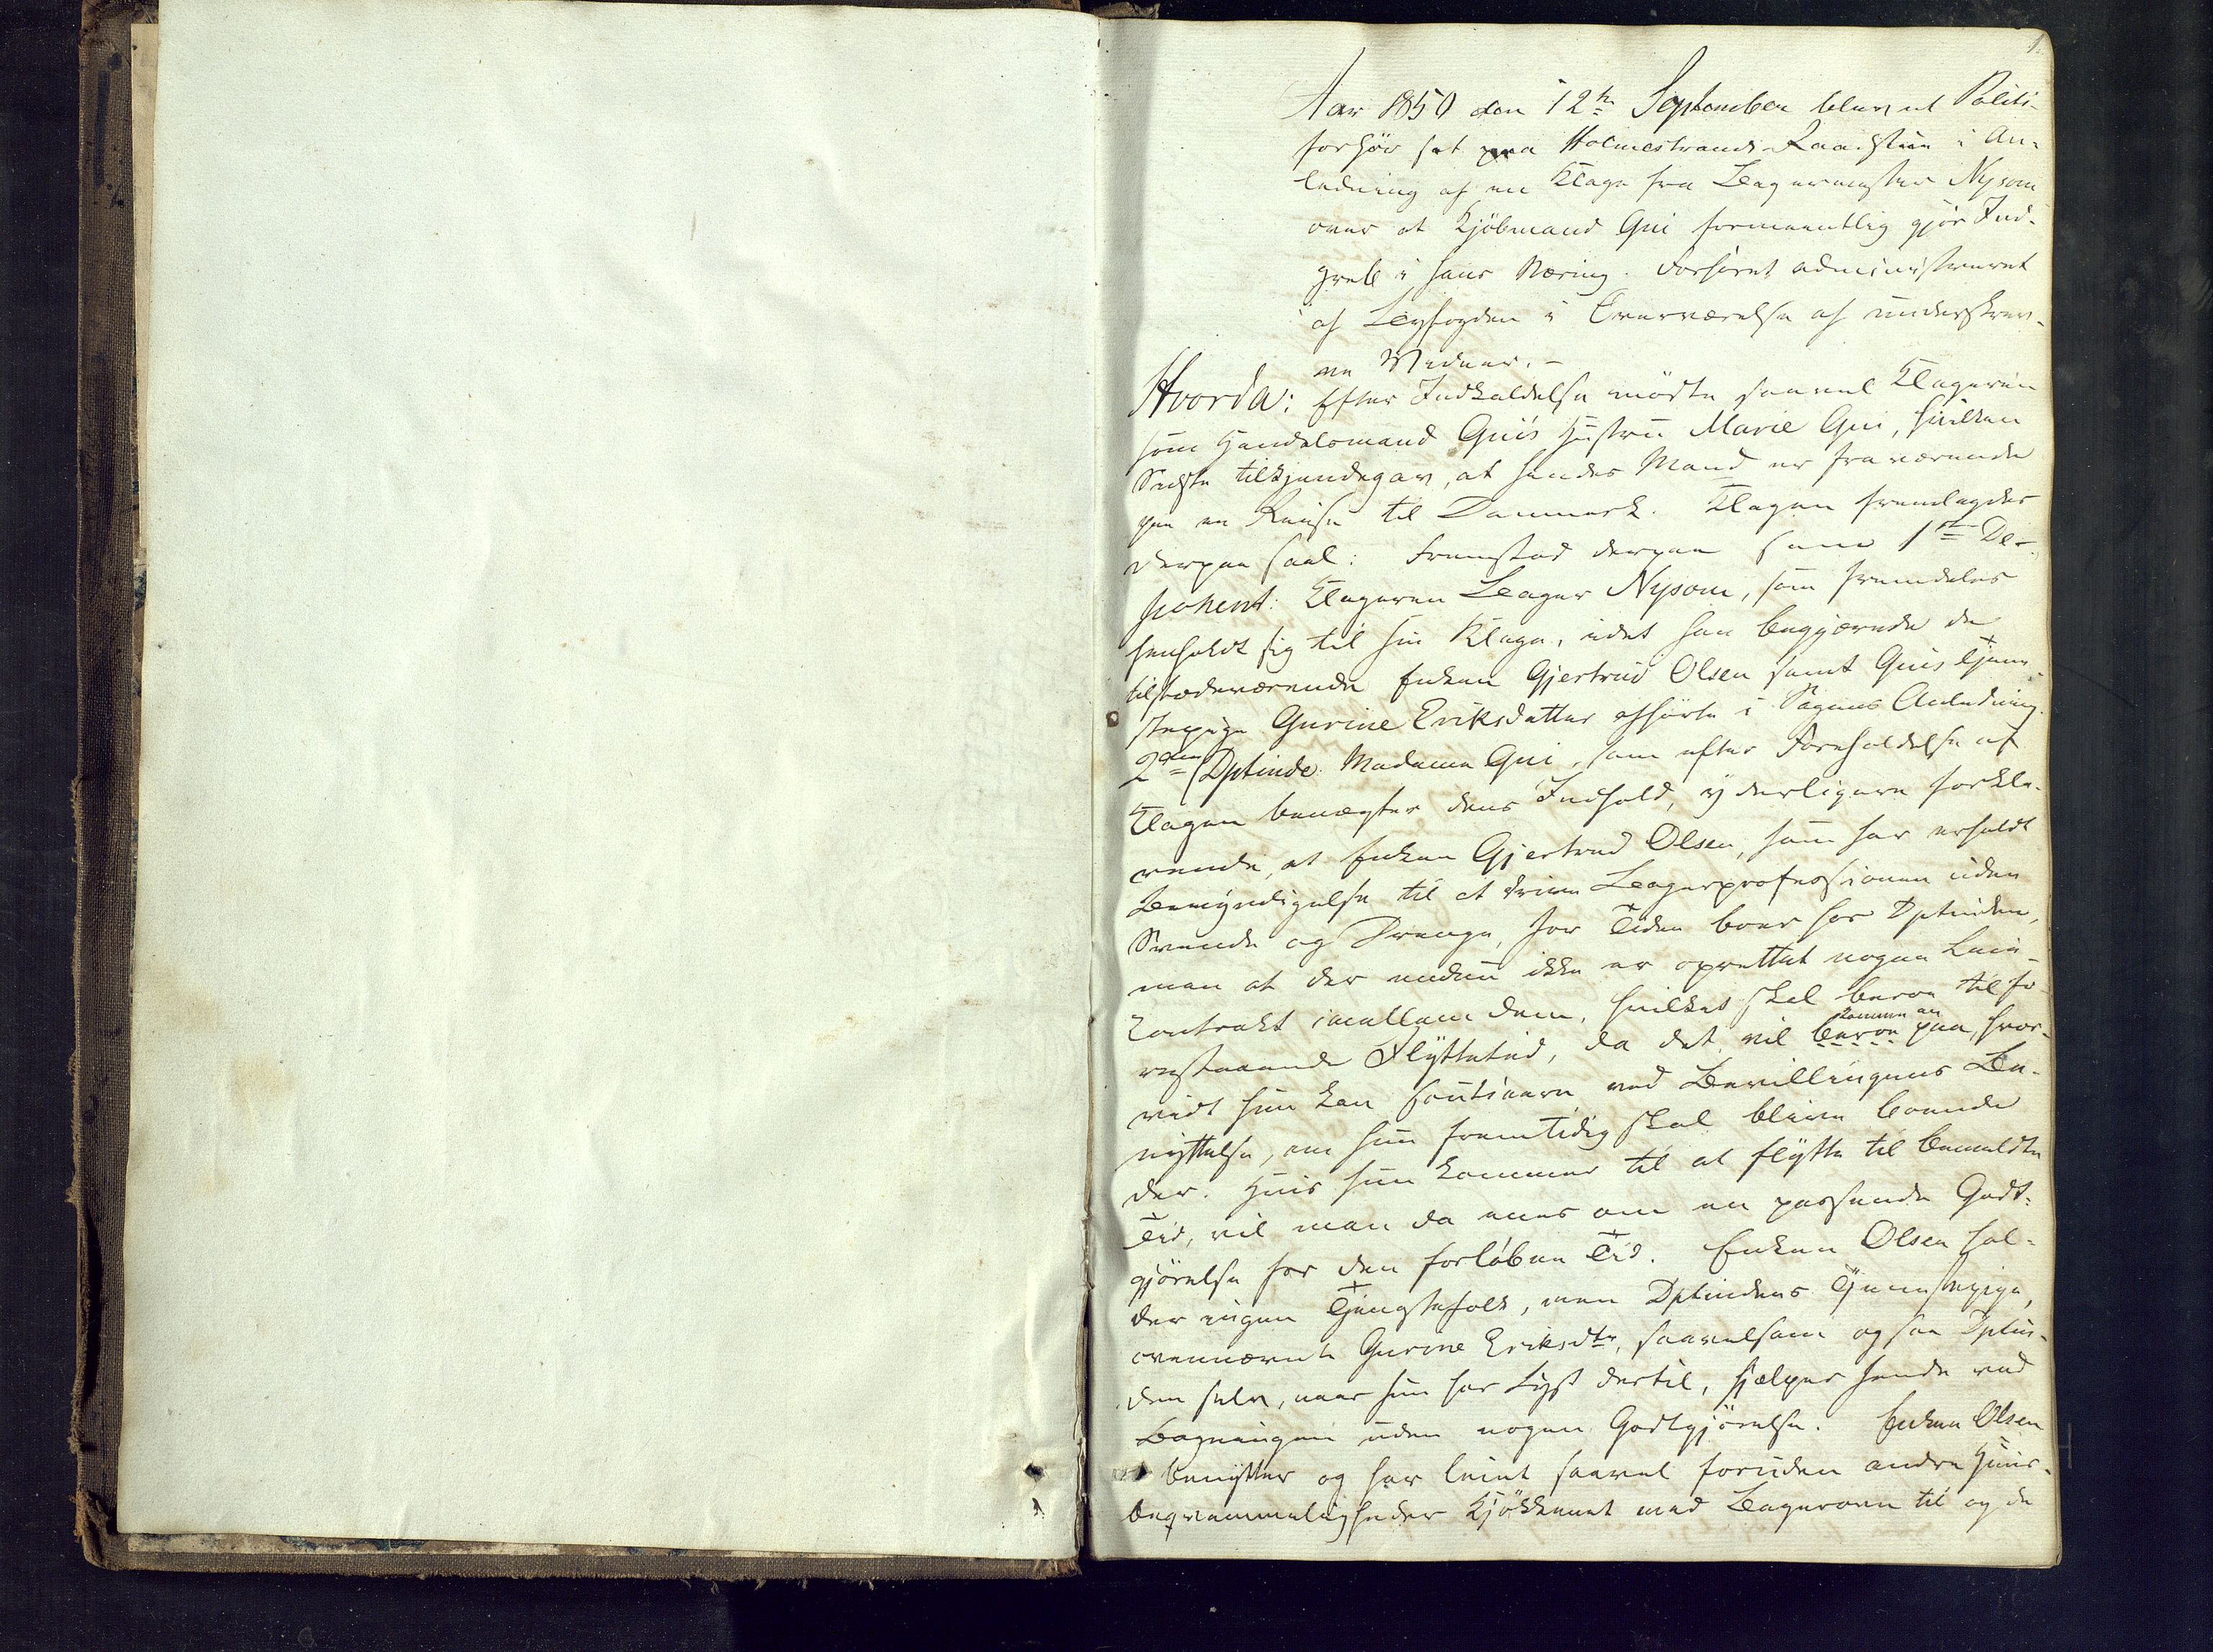 1.
Aar 1850 den 12te September blev et Politi-
forhör sat paa Holmestrands Raadstue i An-
ledning af en Klage fra Bagermester Nysom
over at Kjöbmand Gui formeentlig gjör Ind-
greb i hans Næring. Forhöret administreret
af Byfogden i Overværelse af underskrev-
ne Vidner. -
Hvorda: Efter Indkaldelse mödte saavel Klageren
som Handelsmand Gui's Hustru Marie Gui, hvilken
Sidste tilkjendegav, at hendes Mand er fraværende
paa en Reise til Danmark. Klagen fremlagdes
derpaa saal: Fremstod derpaa som 1ste De-
ponent: Klageren Bager Nysom, som fremdeles
henholdt sig til sin Klage, idet han begjærede de
tilstedeværende Enken Gjertrud Olsen samt Guis Tjene-
stepige Gurine Eriksdatter afhörte i Sagens Anledning.
2den Dptinde: Madame Gui, som efter Foreholdelse af
Klagen benægter dens Indhold, yderligere forkla-
rende, at Enken Gjertrud Olsen, som har erholdt
Bemyndigelse til at drive Bagerprofessionen uden
Svende og Drenge, for Tiden boer hos Dptinden,
men at der endnu ikke er oprettet nogen Leie-
Contrakt imellem dem, hvilket skal beroe til fo-
restaaende Flyttetid, da det vil beroe paa, hvor-
komme an
vidt hun kan continuere med Bevillingens Be-
nyttelse, om hun fremtidig skal blive boende
der. Hvis hun kommer til at flytte til bemeldte
Tid, vil man da enes om en passende Godt-
gjörelse for den forløbne Tid. Enken Olsen hol-
der ingen Tjenestefolk, men Dptindens Tjenestepige,
ovennævnte Gurine Eriksdtr, saavelsom ogsaa Dptin-
den selv, naar hun har Lyst dertil, hjælper hende ved
Bagningen uden nogen Godtgjörelse. Enken Olsen
benytter og har leiet saavel foruden andre Huus-
beqvemmeligheder Kjökkenet med Bagerovn til og de